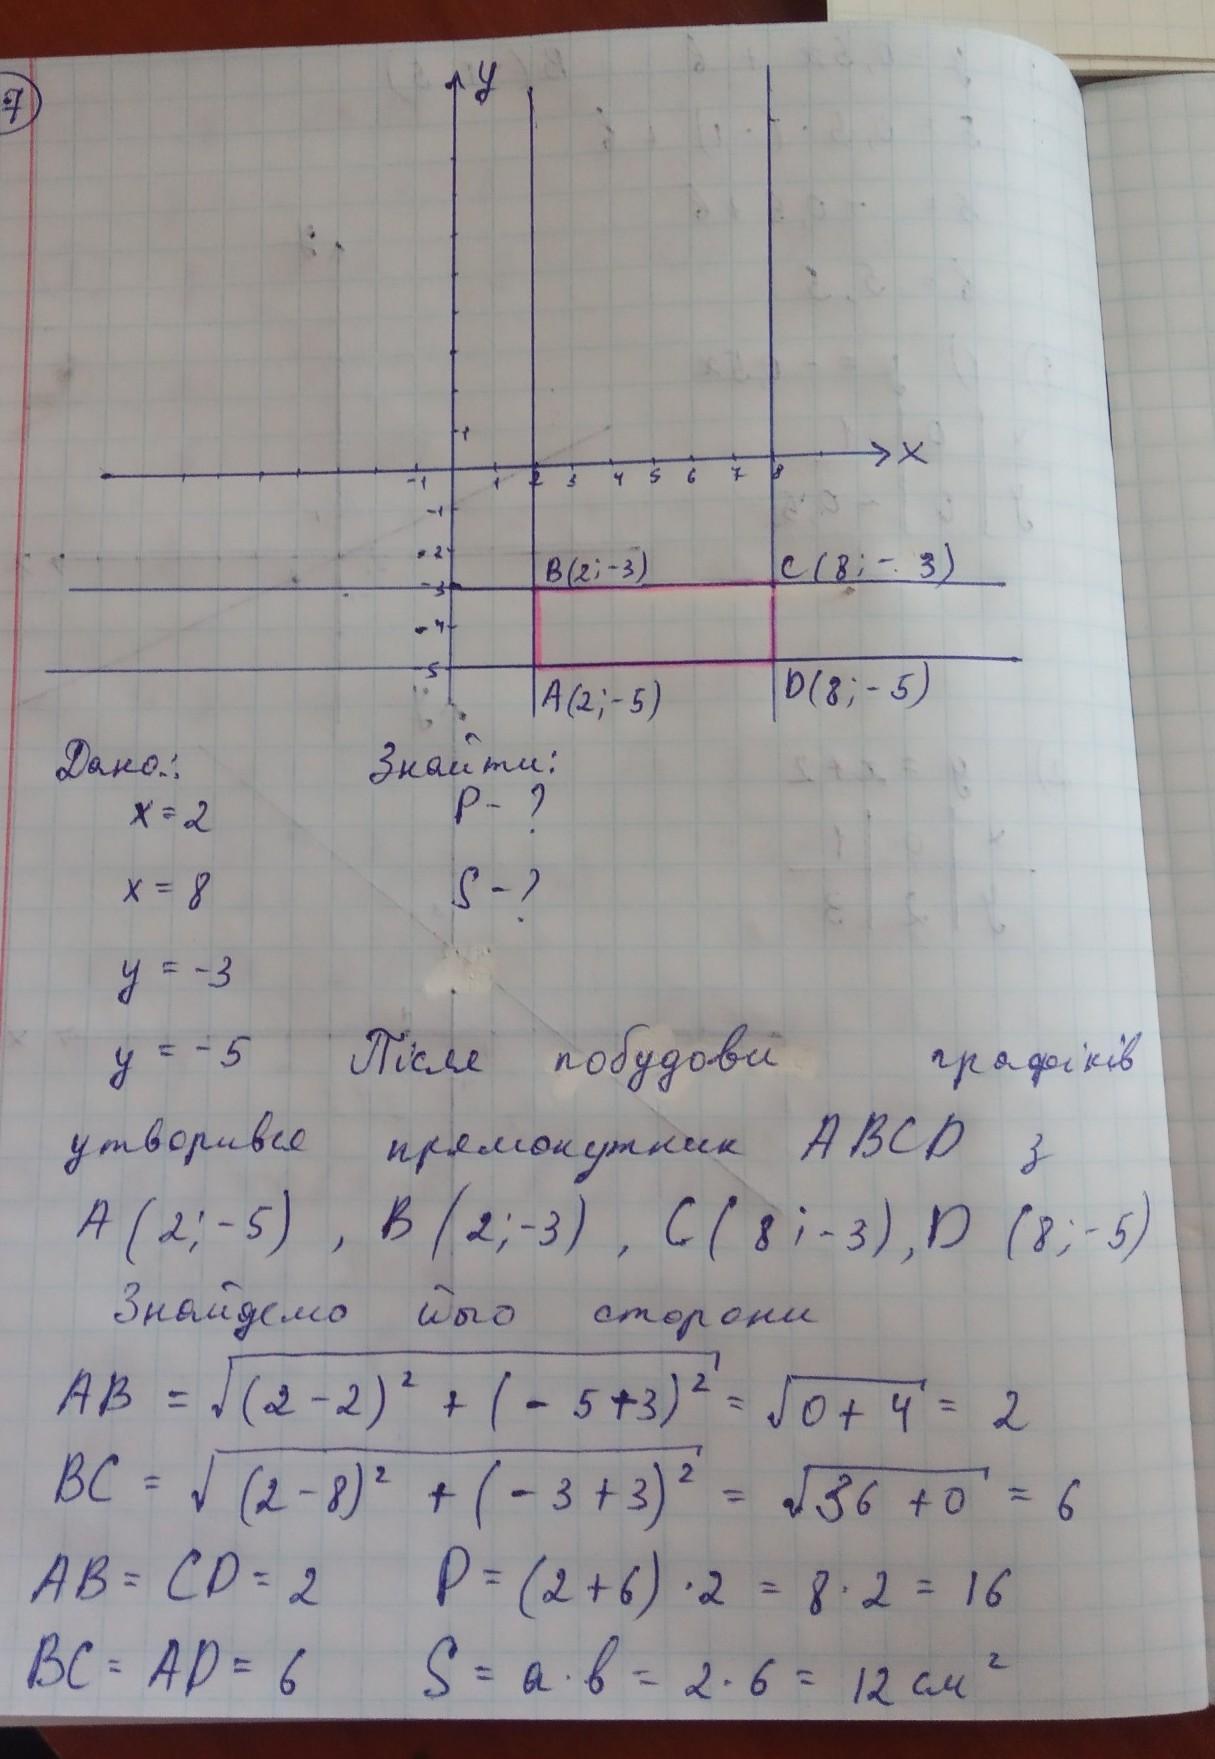 7
y
1
x
-1 1 2 3 4 5 6 7 8
-1
-2
B(2;-3) C(8;-3)
-3
-4
-5
A(2;-5) D(8;-5)
Дано: Знайти:
x=2 P-?
x=8 S-?
y=-3
y=-5 Після побудови графіків
утворився прямокутник ABCD з
A(2;-5), B(2;-3), C(8;-3), D(8;-5)
Знайдемо його сторони
AB = √((2-2)² + (-5+3)²) = √(0+4) = 2
BC = √((2-8)² + (-3+3)²) = √(36+0) = 6
AB = CD = 2 P = (2+6)·2 = 8·2 = 16
BC = AD = 6 S = a·b = 2·6 = 12 см²